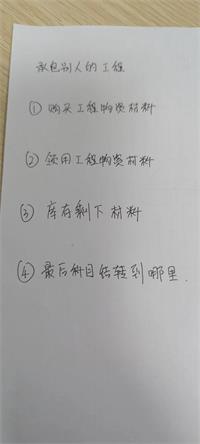 承包别人的工程
① 购买工程物资材料
② 领用工程物资材料
③ 库存剩下材料
④ 最后科目结转到哪里.